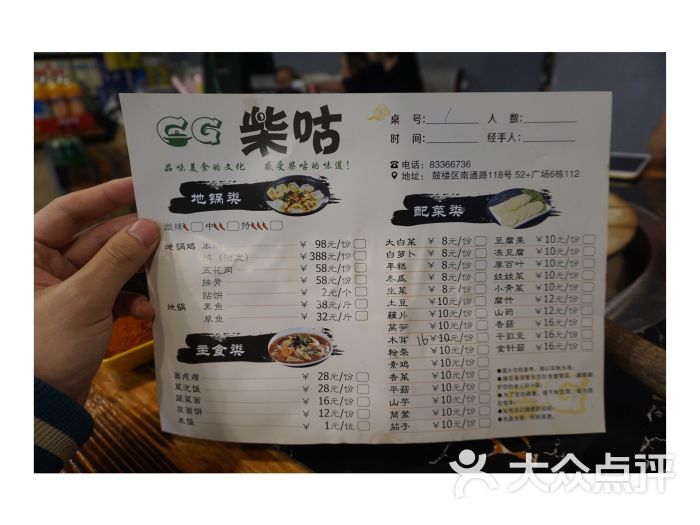 GG 柴咕
品味美食的文化 感受柴咕的味道！
桌 号： 1 人 数：
时 间： 经手人：
电话：83366736
地址：鼓楼区南通路118号 52+广场6栋112
地锅类
微辣 中 特
地锅鸡 本 ¥ 98元/份
¥ 388元/份
五花肉 ¥ 58元/份
排骨 ¥ 58元/份
贴饼 ¥ 2元/个
地锅 黑鱼 ¥ 38元/斤
草鱼 ¥ 32元/斤
主食类
面疙瘩 ¥ 28元/份
菜泡饭 ¥ 28元/份
蔬菜面 ¥ 16元/份
发面饼 ¥ 12元/份
米饭 ¥ 1元/位
配菜类
大白菜 ¥ 8元/份
白萝卜 ¥ 8元/份
年糕 ¥ 8元/份
冬瓜 ¥ 8元/份
生菜 ¥ 8元/份
土豆 ¥10元/份
藕片 ¥10元/份
莴笋 ¥10元/份
木耳 16 ¥10元/份
粉条 ¥10元/份
素鸡 ¥10元/份
香菜 ¥10元/份
平菇 ¥10元/份
山芋 ¥10元/份
茼蒿 ¥10元/份
茄子 ¥10元/份
豆腐果 ¥10元/份
冻豆腐 ¥10元/份
厚百叶 ¥10元/份
娃娃菜 ¥10元/份
小青菜 ¥10元/份
腐竹 ¥12元/份
山药 ¥12元/份
香菇 ¥16元/份
干豇豆 ¥16元/份
金针菇 ¥16元/份
●图片仅供参考，请以实物为准。
大众点评